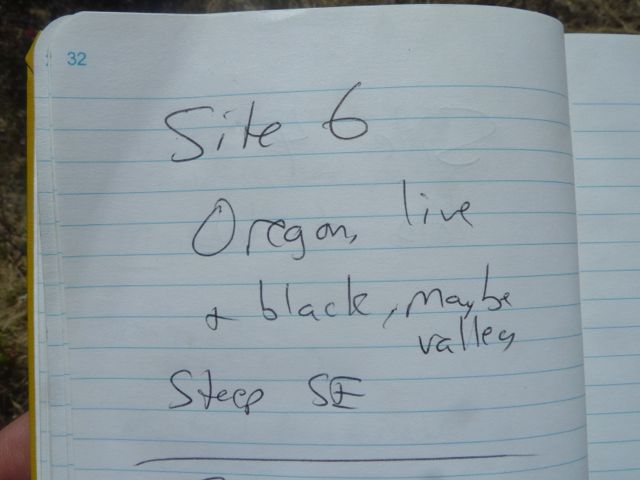 32
Site 6
Oregon, live
& black, maybe
valley
Steep SE